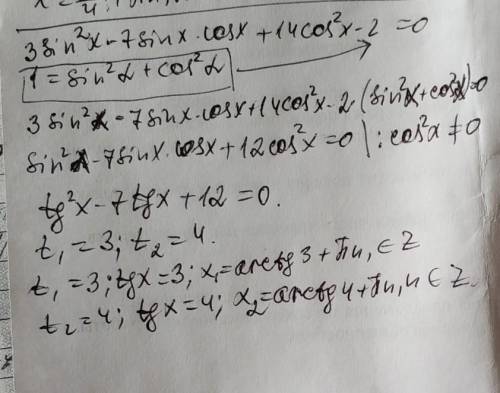 3sin²x - 7sinx · cosx + 14cos²x - 2 = 0
1 = sin²α + cos²α
3sin²x - 7sinx · cosx + 14cos²x - 2(sin²x + cos²x) = 0
sin²x - 7sinx · cosx + 12cos²x = 0 | : cos²α ≠ 0
tg²x - 7tgx + 12 = 0.
t₁ = 3; t₂ = 4.
t₁ = 3; tgx = 3; x₁ = arctg3 + πn, ∈ Z
t₂ = 4; tgx = 4; x₂ = arctg4 + πn, n ∈ Z.